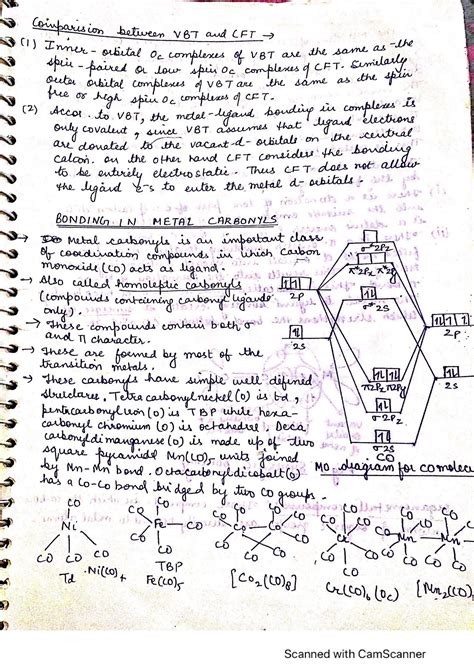 Comparision between VBT and CFT →
(1) Inner-orbital Oc complexes of VBT are the same as the
spin-paired or low spin Oc complexes of CFT. Similarly
outer orbital complexes of VBT are the same as the spin
free or high spin Oc complexes of CFT.
(2) Accor. to VBT, the metal-ligand bonding in complexes is
only covalent, since VBT assumes that ligand electrons
are donated to the vacant d-orbitals on the central
cation. on the other hand CFT considers the bonding
to be entirely electrostatic. Thus CFT does not allow
the ligand e-s to enter the metal d-orbitals.
BONDING IN METAL CARBONYLS
→ Metal carbonyls is an important class
of coordination compounds in which carbon
monoxide (CO) acts as ligand.
→ Also called homoleptic carbonyls
(compounds containing carbonyl ligands
only).
→ These compounds contain both σ
and π character.
→ These are formed by most of the
transition metals.
→ These carbonyls have simple well defined
structures. Tetracarbonylnickel (0) is td,
pentacarbonyliron (0) is TBP while hexa-
carbonyl chromium (0) is octahedral. Deca
carbonyldimanganese (0) is made up of two
square pyramidal Mn(CO)5 units joined
by Mn-Mn bond. Octacarbonyldicobalt (0)
has a Co-Co bond bridged by two CO groups.
σ*2Pz
π*2Px π*2Py
σ*2s
2P
2s
2P
2s
π2Px π2Py
σ-2Pz
σ2s
CO
MO-diagram for CO molecu
CO
Ni
CO CO CO
Td Ni(CO)4
CO
CO
Fe
CO
CO CO
TBP
Fe(CO)5
CO
Co Co
CO
[Co2(CO)8]
CO
Cr
CO
Cr(CO)6 (Oc)
CO
Mn Mn
CO
[Mn2(CO)
Scanned with CamScanner